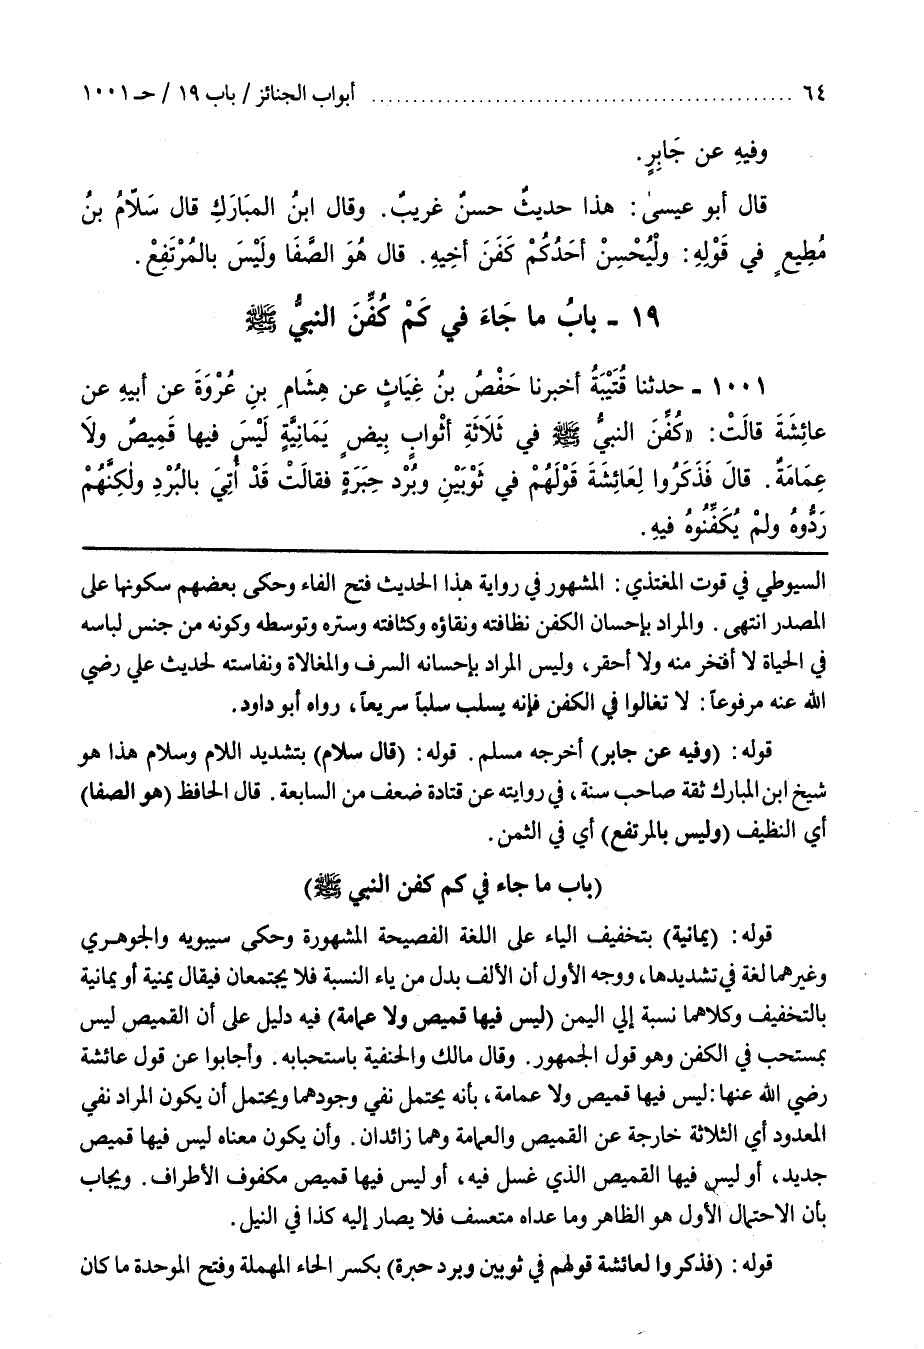 ٦٤ ........................................ أبواب الجنائز / باب ١٩ / حـ ١٠٠١
وفيهِ عن جَابِرٍ.
قال أبو عيسىٰ: هذا حديثٌ حسنٌ غريبٌ. وقال ابنُ المبَارَكِ قال سَلاَّمُ بنُ
مُطِيعٍ في قَوْلِهِ: ولْيُحْسِنْ أحَدُكُمْ كَفَنَ أخِيهِ. قال هُوَ الصَّفَا ولَيْسَ بالمُرْتَفِعْ.
١٩ ـ بابُ ما جَاءَ في كَمْ كُفِّنَ النبيُّ ﷺ
١٠٠١ ـ حدثنا قُتَيْبَةُ أخبرنا حَفْصُ بنُ غِيَاثٍ عن هِشَامِ بنِ عُرْوَةَ عن أبيهِ عن
عائِشَةَ قالَتْ: «كُفِّنَ النبيُّ ﷺ في ثَلَاثَةِ أثْوابٍ بِيضٍ يَمَانِيَّةٍ لَيْسَ فيها قَمِيصٌ ولَا
عِمَامَةٌ. قالَ فَذَكَرُوا لِعَائِشَةَ قَوْلَهُمْ في ثَوْبَيْنِ وبُرْدِ حِبَرَةٍ فقالَتْ قَدْ أُتِيَ بالبُرْدِ ولٰكِنَّهُمْ
رَدُّوهُ ولمْ يُكَفِّنُوهُ فيهِ.
السيوطي في قوت المغتذي: المشهور في رواية هذا الحديث فتح الفاء وحكى بعضهم سكونها على
المصدر انتهى. والمراد بإحسان الكفن نظافته ونقاؤه وكثافته وستره وتوسطه وكونه من جنس لباسه
في الحياة لا أفخر منه ولا أحقر، وليس المراد بإحسانه السرف والمغالاة ونفاسته لحديث علي رضي
الله عنه مرفوعاً: لا تغالوا في الكفن فإنه يسلب سلباً سريعاً، رواه أبو داود.
قوله: (وفيه عن جابر) أخرجه مسلم. قوله: (قال سلام) بتشديد اللام وسلام هذا هو
شيخ ابن المبارك ثقة صاحب سنة، في روايته عن قتادة ضعف من السابعة. قال الحافظ (هو الصفا)
أي النظيف (وليس بالمرتفع) أي في الثمن.
(باب ما جاء في كم كفن النبي ﷺ)
قوله: (يمانية) بتخفيف الياء على اللغة الفصيحة المشهورة وحكى سيبويه والجوهري
وغيرهما لغة في تشديدها، ووجه الأول أن الألف بدل من ياء النسبة فلا يجتمعان فيقال يمنية أو يمانية
بالتخفيف وكلاهما نسبة إلي اليمن (ليس فيها قميص ولا عمامة) فيه دليل على أن القميص ليس
بمستحب في الكفن وهو قول الجمهور. وقال مالك والحنفية باستحبابه. وأجابوا عن قول عائشة
رضي الله عنها: ليس فيها قميص ولا عمامة، بأنه يحتمل نفي وجودهما ويحتمل أن يكون المراد نفي
المعدود أي الثلاثة خارجة عن القميص والعمامة وهما زائدان. وأن يكون معناه ليس فيها قميص
جديد، أو ليس فيها القميص الذي غسل فيه، أو ليس فيها قميص مكفوف الأطراف. ويجاب
بأن الاحتمال الأول هو الظاهر وما عداه متعسف فلا يصار إليه كذا في النيل.
قوله: (فذكروا لعائشة قولهم في ثوبين وبرد حبرة) بكسر الحاء المهملة وفتح الموحدة ما كان